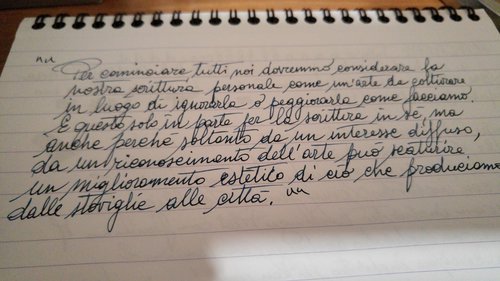 "Per cominciare, tutti noi dovremmo considerare la
nostra scrittura personale come un'arte da coltivare
in luogo di ignorarla o peggiorarla come facciamo.
E questo solo in parte per la scrittura in sé, ma
anche perché soltanto da un interesse diffuso,
da un riconoscimento dell'arte può scaturire
un miglioramento estetico di ciò che produciamo
dalle stoviglie alle città."